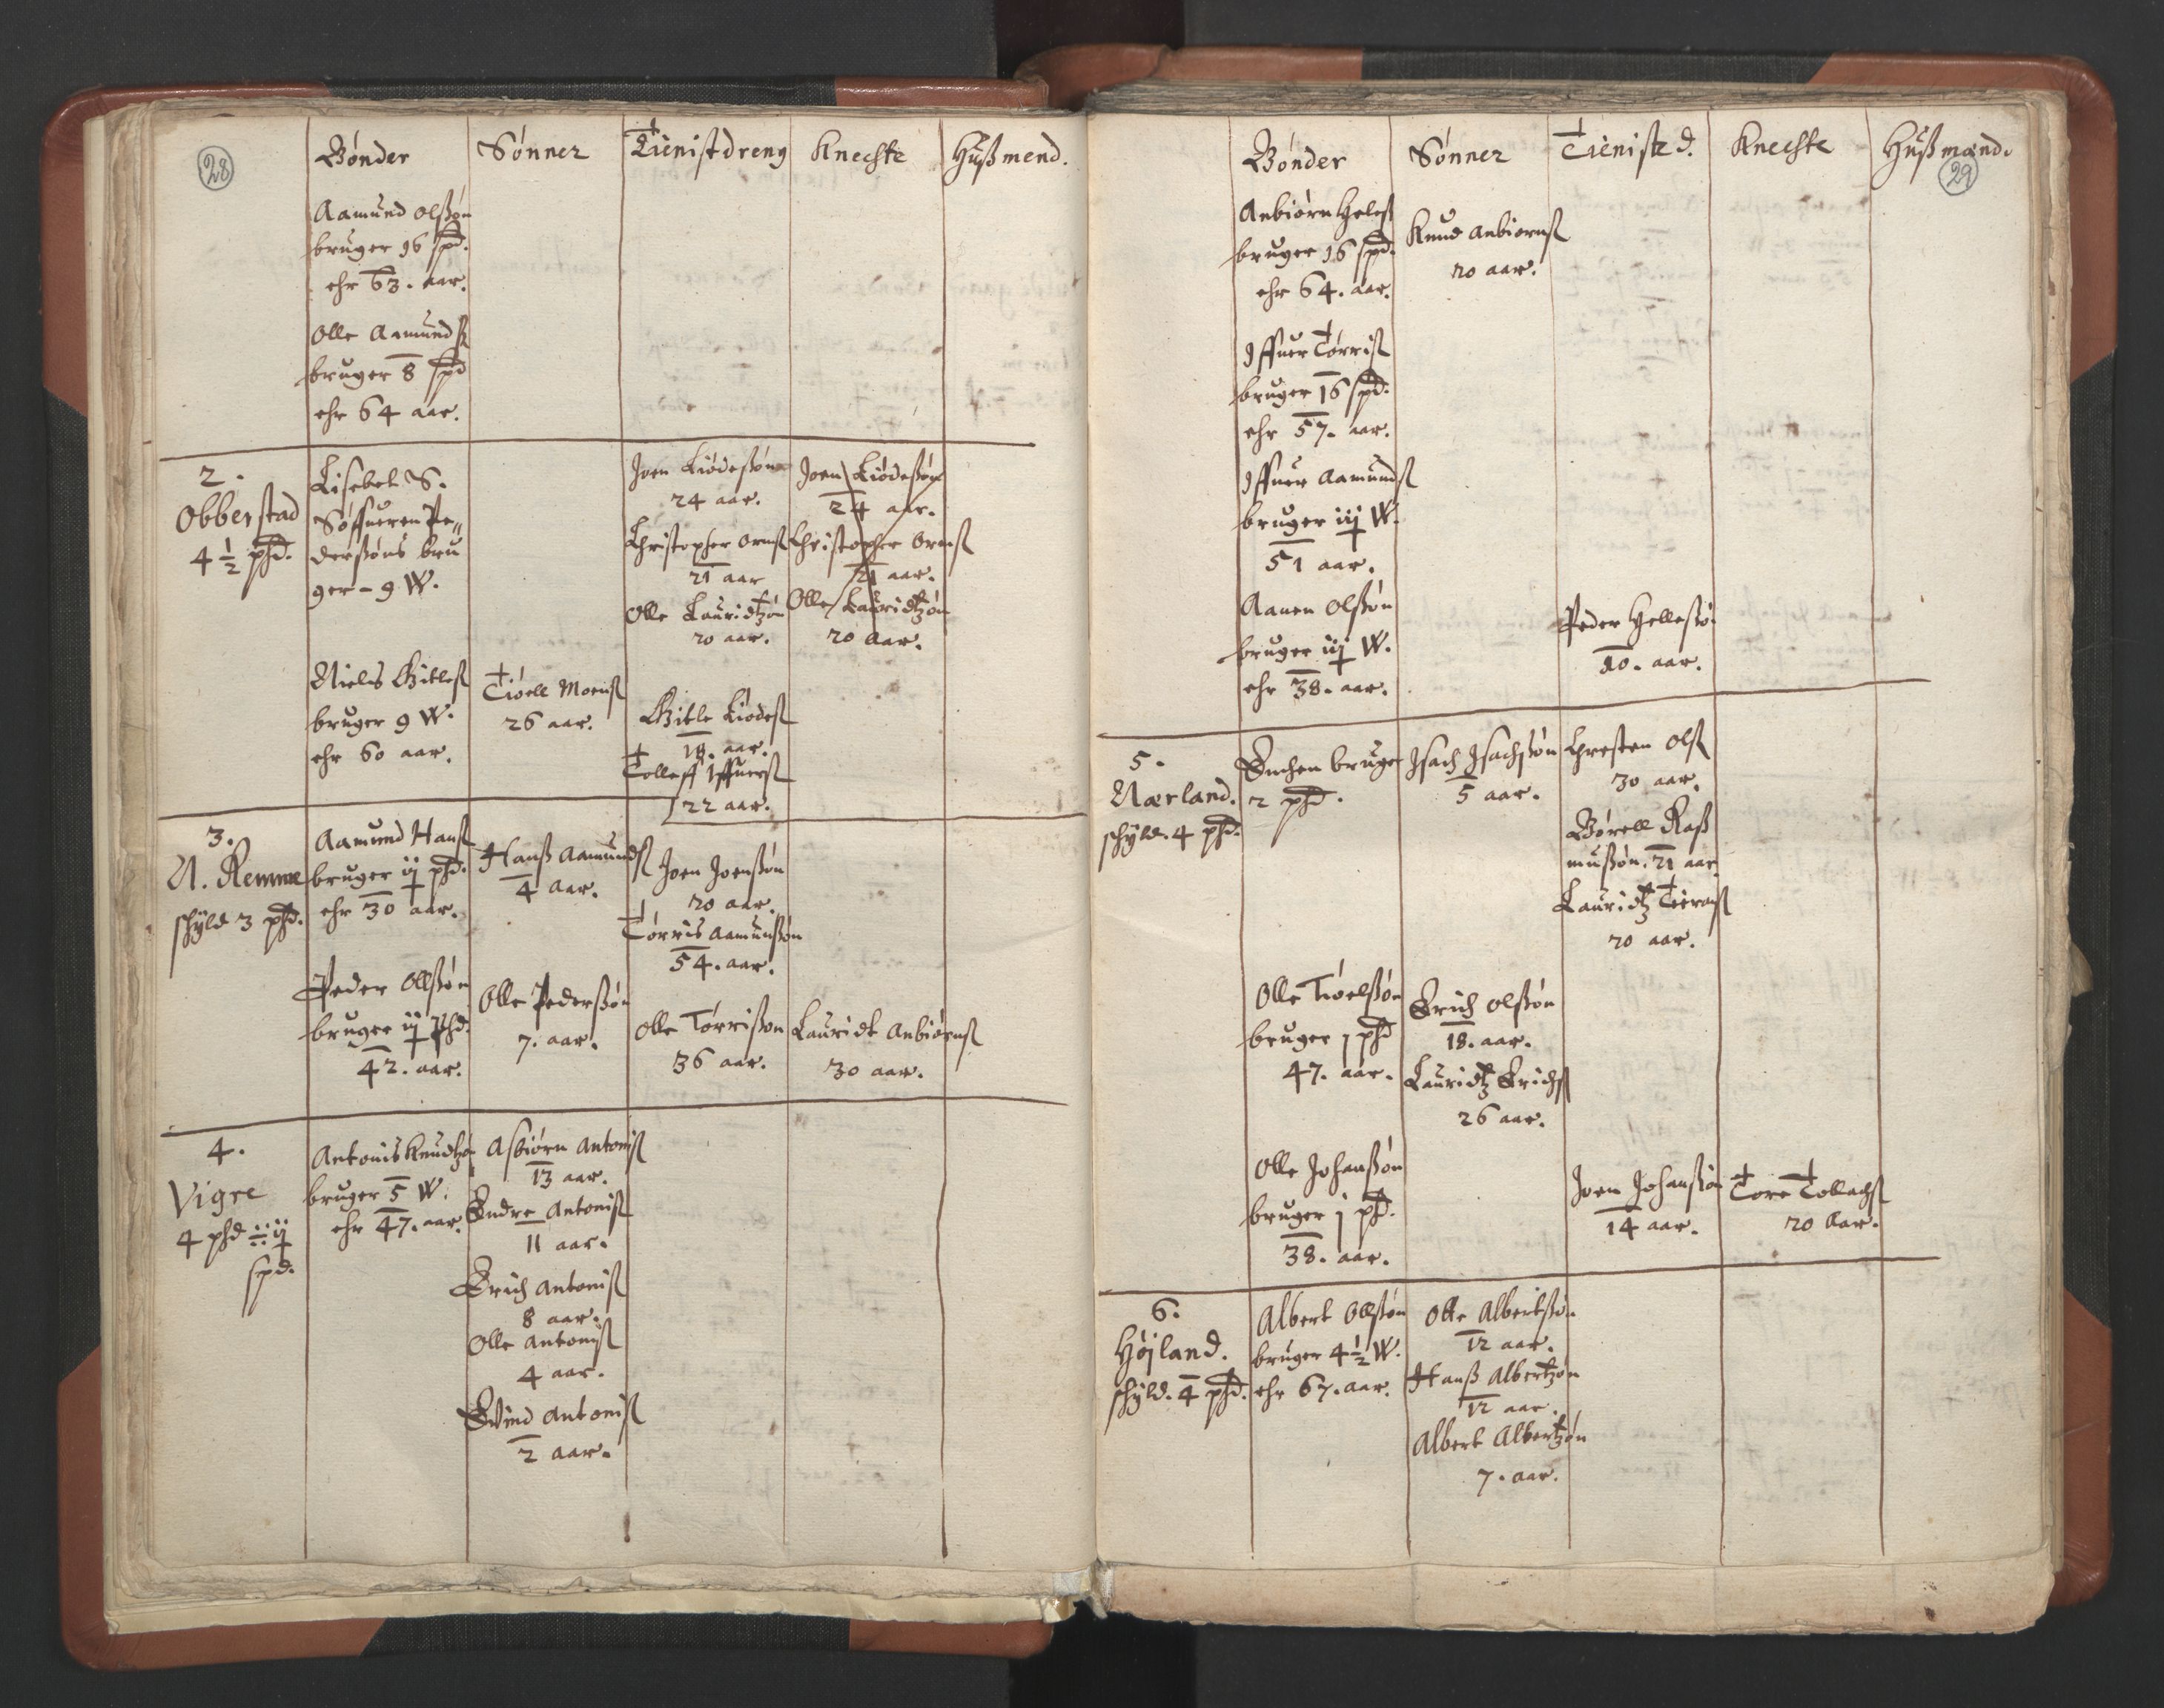 28
Bønder Sønner Tienistdreng Knechte Hußmend.
Aamund Olßøn
bruger 16 spd.
ehr 63. aar.
Olle Aamundß
bruger 8 spd
ehr 64 aar.
2.
Obberstad
4 1/2 phd.
Lisebet S.
Søffueren Pe„
derßøns bru
ger - 9 W.
Joen Kiødeßøn
24 aar.
Christopher Ormß
21 aar
Olle Lauridtzøn
20 aar.
Joen Kiødeßøn
24 aar.
Christopher Ormß
21 aar.
Olle Lauridtzøn
20 aar.
Niels Gitleß
bruger 9 W.
ehr 60 aar.
Tiøell Moensß
26 aar.
Gitle Kiødeß
18. aar.
Tolleff Iffuerß
22 aar.
3.
N. Remme
schyld 3 phd.
Aamund Hanß
bruger ij phd.
ehr 30 aar.
Hanß Aamundß
4 aar.
Joen Joenßøn
20 aar.
Tørris Aamunßøn
54. aar.
Peder Olßøn
bruger ij Phd.
42. aar.
Olle Pederßøn
7. aar.
Olle Tørrisøn
36 aar.
Lauridt Anbiørnß
30 aar.
4.
Vigre
4 phd ij
spd.
Antonis Knudtzøn
bruger 5 W.
ehr 47. aar.
Asbiørn Antoniß
13 aar.
Endre Antoniß
11 aar.
Erich Antoniß
8 aar.
Olle Antoniß
4 aar.
Evind Antoniß
2 aar.
29
Bønder Sønner Tieniste d. Knechte Hußmænd.
Anbiørn Heleß
bruger 16 spd.
ehr 64. aar.
Knud Anbiørnß
20 aar.
Iffuer Tørriß
bruger 16 spd.
ehr 57. aar.
Iffuer Aamundß
bruger iij W.
51 aar.
Aanen Olßøn
bruger iij W.
ehr 38. aar.
Peder Helleßøn
20. aar.
5.
Nærland.
schyld. 4 phd.
Enchen bruger
2 phd.
Isach Isachßøn
5 aar.
Chresten Olß
30 aar.
Børell Raß
mußøn. 21 aar
Lauridtz
20 aar.
Olle Tiøelßøn
bruger j phd
47. aar.
Erich Olßøn
18. aar.
Lauridtz Erichß
26 aar.
Olle Johanßøn
bruger j phd.
38. aar.
Joen Johanßøn
14 aar.
Tore Tollachß
20 aar.
6.
Højland.
schyld. 4 phd.
Albert Olßøn
bruger 4 1/2 W.
ehr 67. aar.
Otte Albertßøn
12 aar.
Hanß Albertzøn
12 aar.
Albert Albertzøn
7. aar.